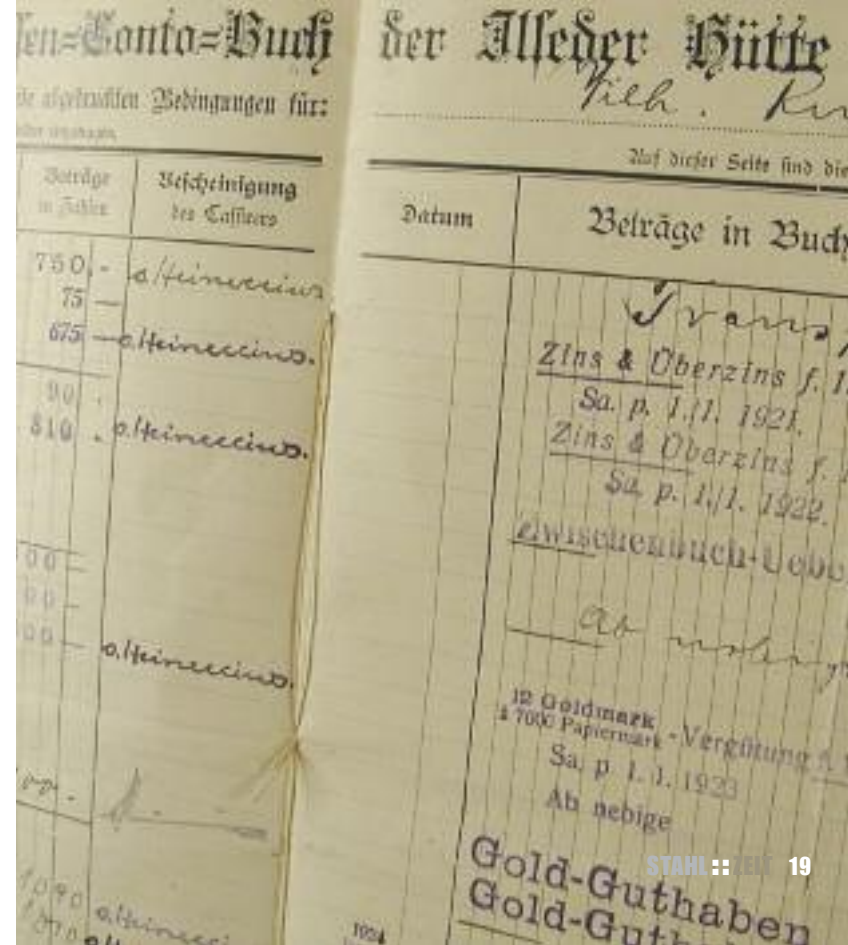 en=Conto=Buch
abgedruckten Bedingungen für:
Beträge
in Zahlen
Bescheinigung
des Cassierers
750 -
o. Heineccius
75 —
675 — o. Heineccius.
90 .
810 . o. Heineccius.
00 —
00 —
00 — o. Heineccius.
1090 o. Heineccius
1070
der Ilseder Hütte
Wilh.
Auf dieser Seite sind die
Datum
Beträge in Buch
Trans
Zins & Überzins f. 1
Sa. p. 1./1. 1921.
Zins & Überzins f.
Sa. p. 1./1. 1922.
Zwischenbuch-Uebe
Ab
12 Goldmark
à 7000 Papiermark - Vergütung
Sa. p. 1. 1. 1923
Ab nebige
Gold-Guthaben
Gold-Guth
1924
STAHL::ZEIT 19